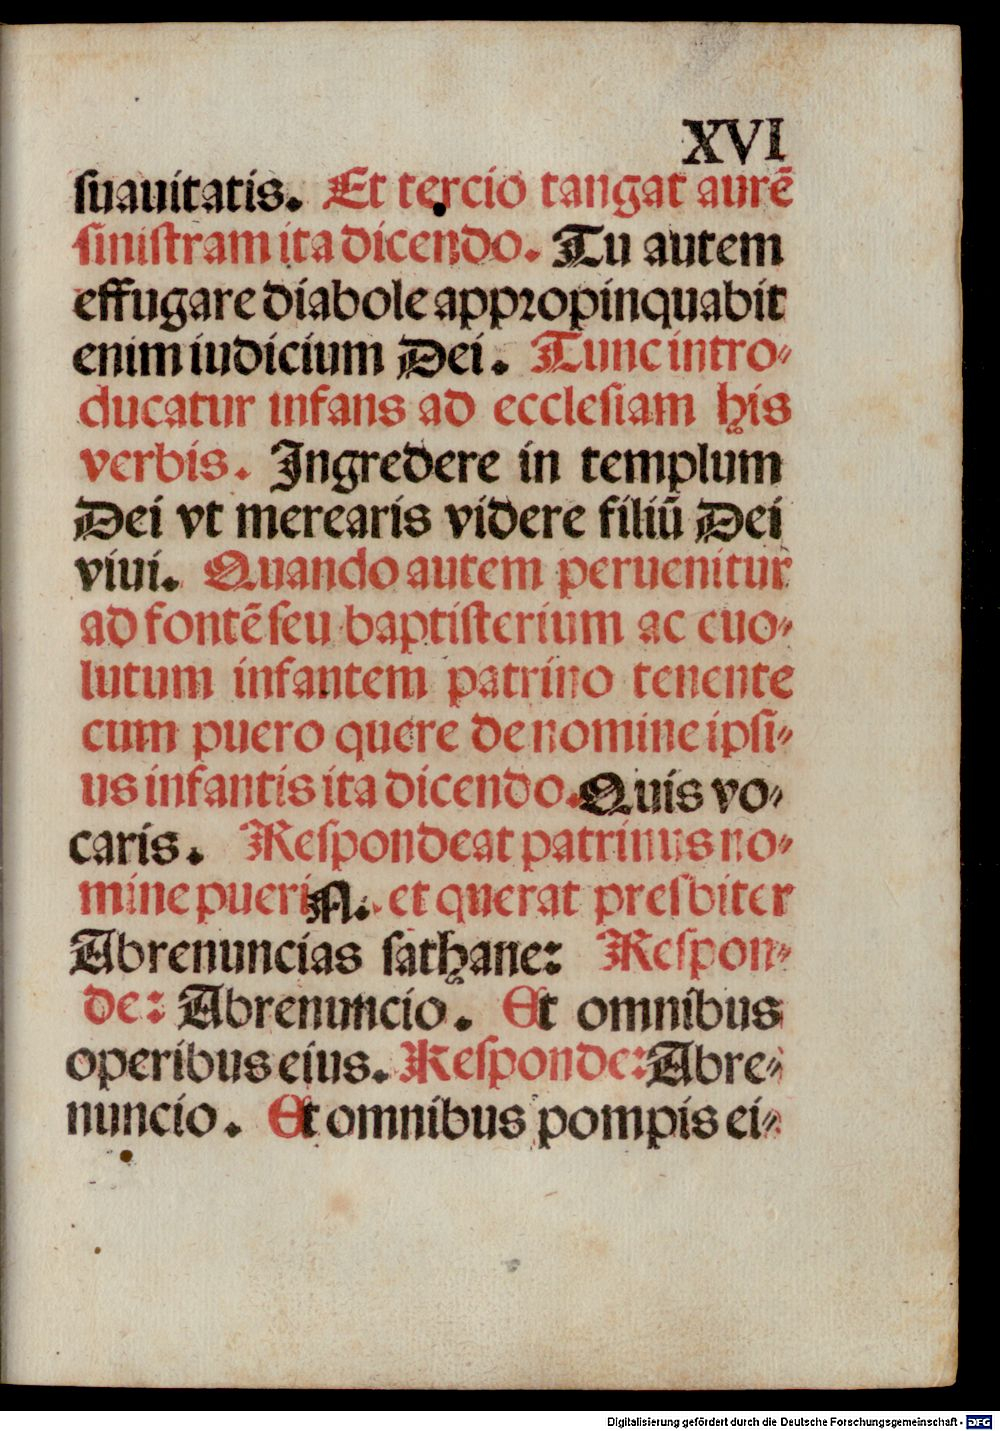 XVI
suauitatis. Et tercio tangat aurē
sinistram ita dicendo. Tu autem
effugare diabole appropinquabit
enim iudicium Dei. Tunc intro⸗
ducatur infans ad ecclesiam his
verbis. Ingredere in templum
Dei vt merearis videre filiū Dei
viui. Quando autem peruenitur
ad fontē seu baptisterium ac euo⸗
lutum infantem patrino tenente
cum puero quere de nomine ipsi⸗
us infantis ita dicendo. Quis vo⸗
caris. Respondeat patrinus no⸗
mine pueri N. et querat presbiter
Abrenuncias sathane: Respon⸗
de: Abrenuncio. Et omnibus
operibus eius. Responde: Abre⸗
nuncio. Et omnibus pompis ei⸗
Digitalisierung gefördert durch die Deutsche Forschungsgemeinschaft - DFG